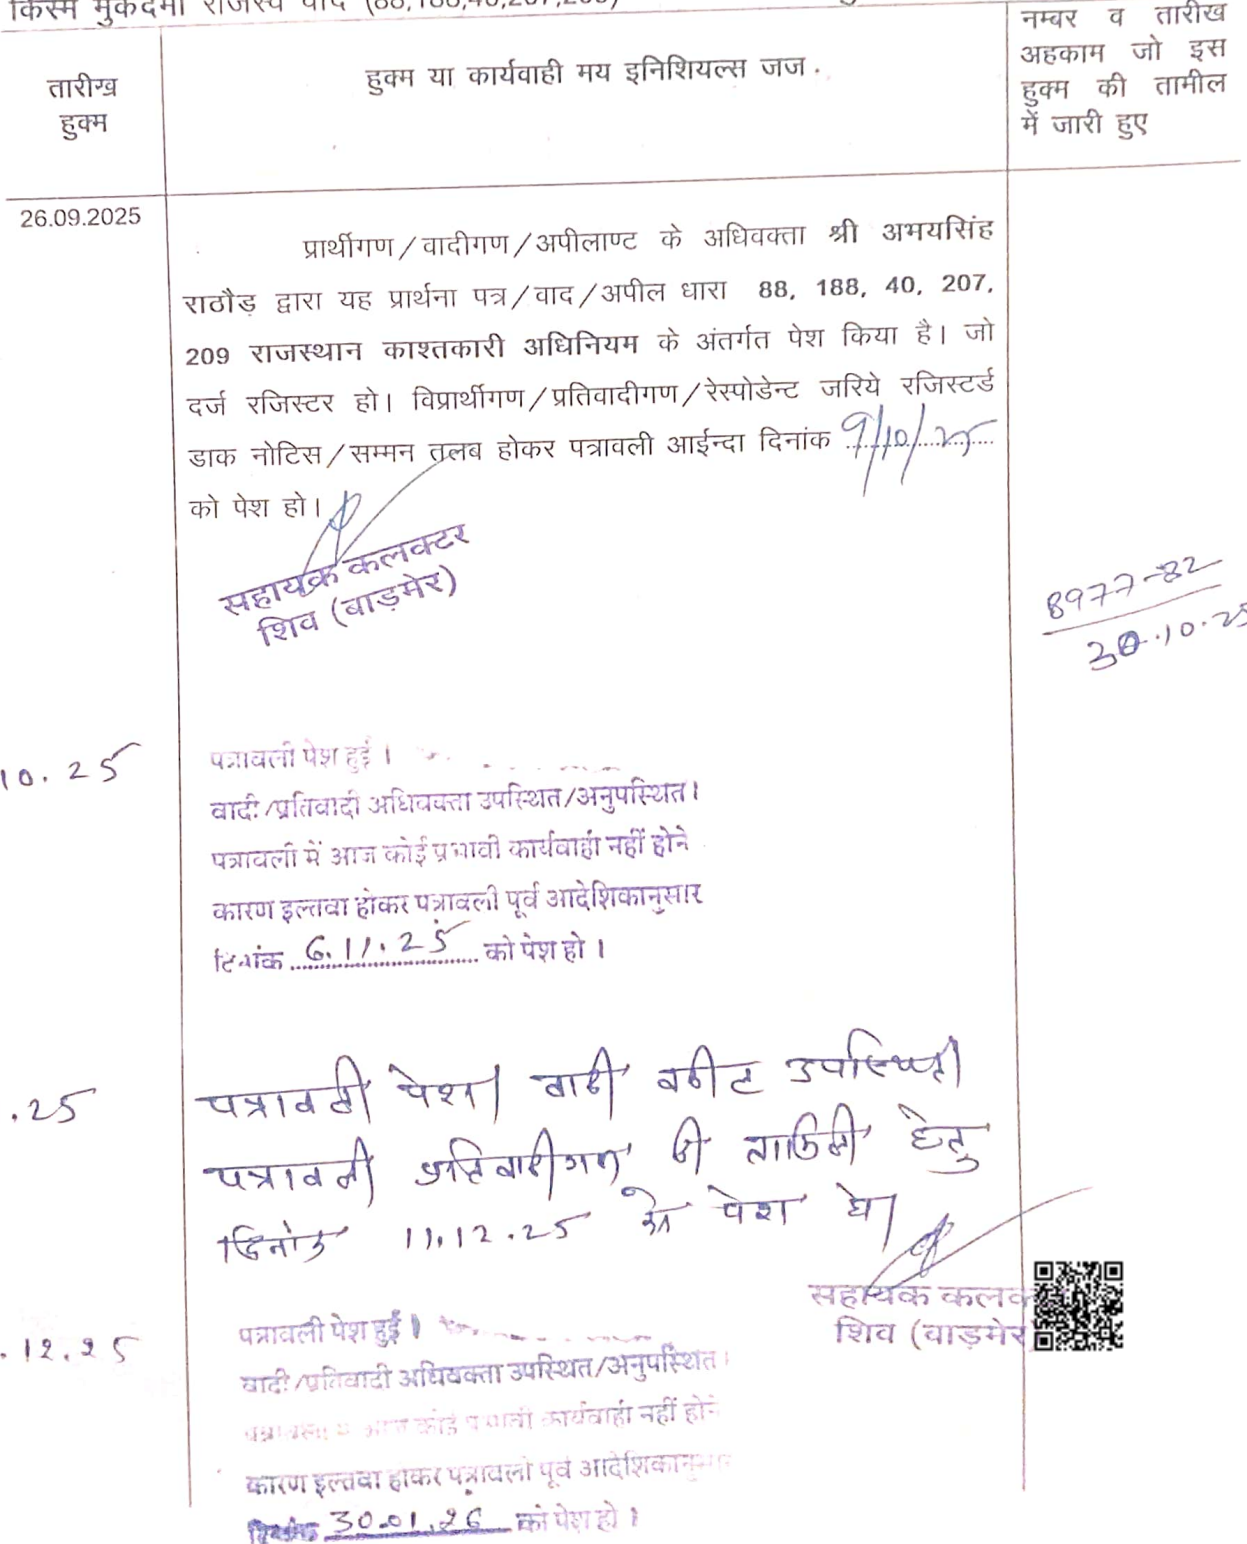 किस्म मुकदमा राजस्व वाद (88,188,40,207,209)
तारीख हुक्म
हुक्म या कार्यवाही मय इनिशियल्स जज.
नम्बर व तारीख
अहकाम जो इस
हुक्म की तामील
में जारी हुए
26.09.2025
प्रार्थीगण/वादीगण/अपीलाण्ट के अधिवक्ता श्री अभयसिंह
राठौड़ द्वारा यह प्रार्थना पत्र/वाद/अपील धारा 88, 188, 40, 207,
209 राजस्थान काश्तकारी अधिनियम के अंतर्गत पेश किया है। जो
दर्ज रजिस्टर हो। विप्रार्थीगण/प्रतिवादीगण/रेस्पोडेन्ट जरिये रजिस्टर्ड
डाक नोटिस/सम्मन तलब होकर पत्रावली आईन्दा दिनांक 9/10/25
को पेश हो।
सहायक कलक्टर
शिव (बाड़मेर)
8977-82
30.10.25
10.25
पत्रावली पेश हुई।
वादी/प्रतिवादी अधिवक्ता उपस्थित/अनुपस्थित।
पत्रावली में आज कोई प्रभावी कार्यवाही नहीं होने
कारण इल्तवा होकर पत्रावली पूर्व आदेशिकानुसार
दिनांक 6.11.25 को पेश हो।
.25
पत्रावली पेश। वादी वकील उपस्थित।
पत्रावली प्रतिवादीगण की तामिली हेतु
दिनांक 11.12.25 को पेश हो।
सहायक कलक
शिव (बाड़मेर
.12.25
पत्रावली पेश हुई।
वादी/प्रतिवादी अधिवक्ता उपस्थित/अनुपस्थित।
पत्रावली में आज कोई प्रभावी कार्यवाही नहीं होने
कारण इल्तवा होकर पत्रावली पूर्व आदेशिकानुसार
दिनांक 30.01.26 को पेश हो।